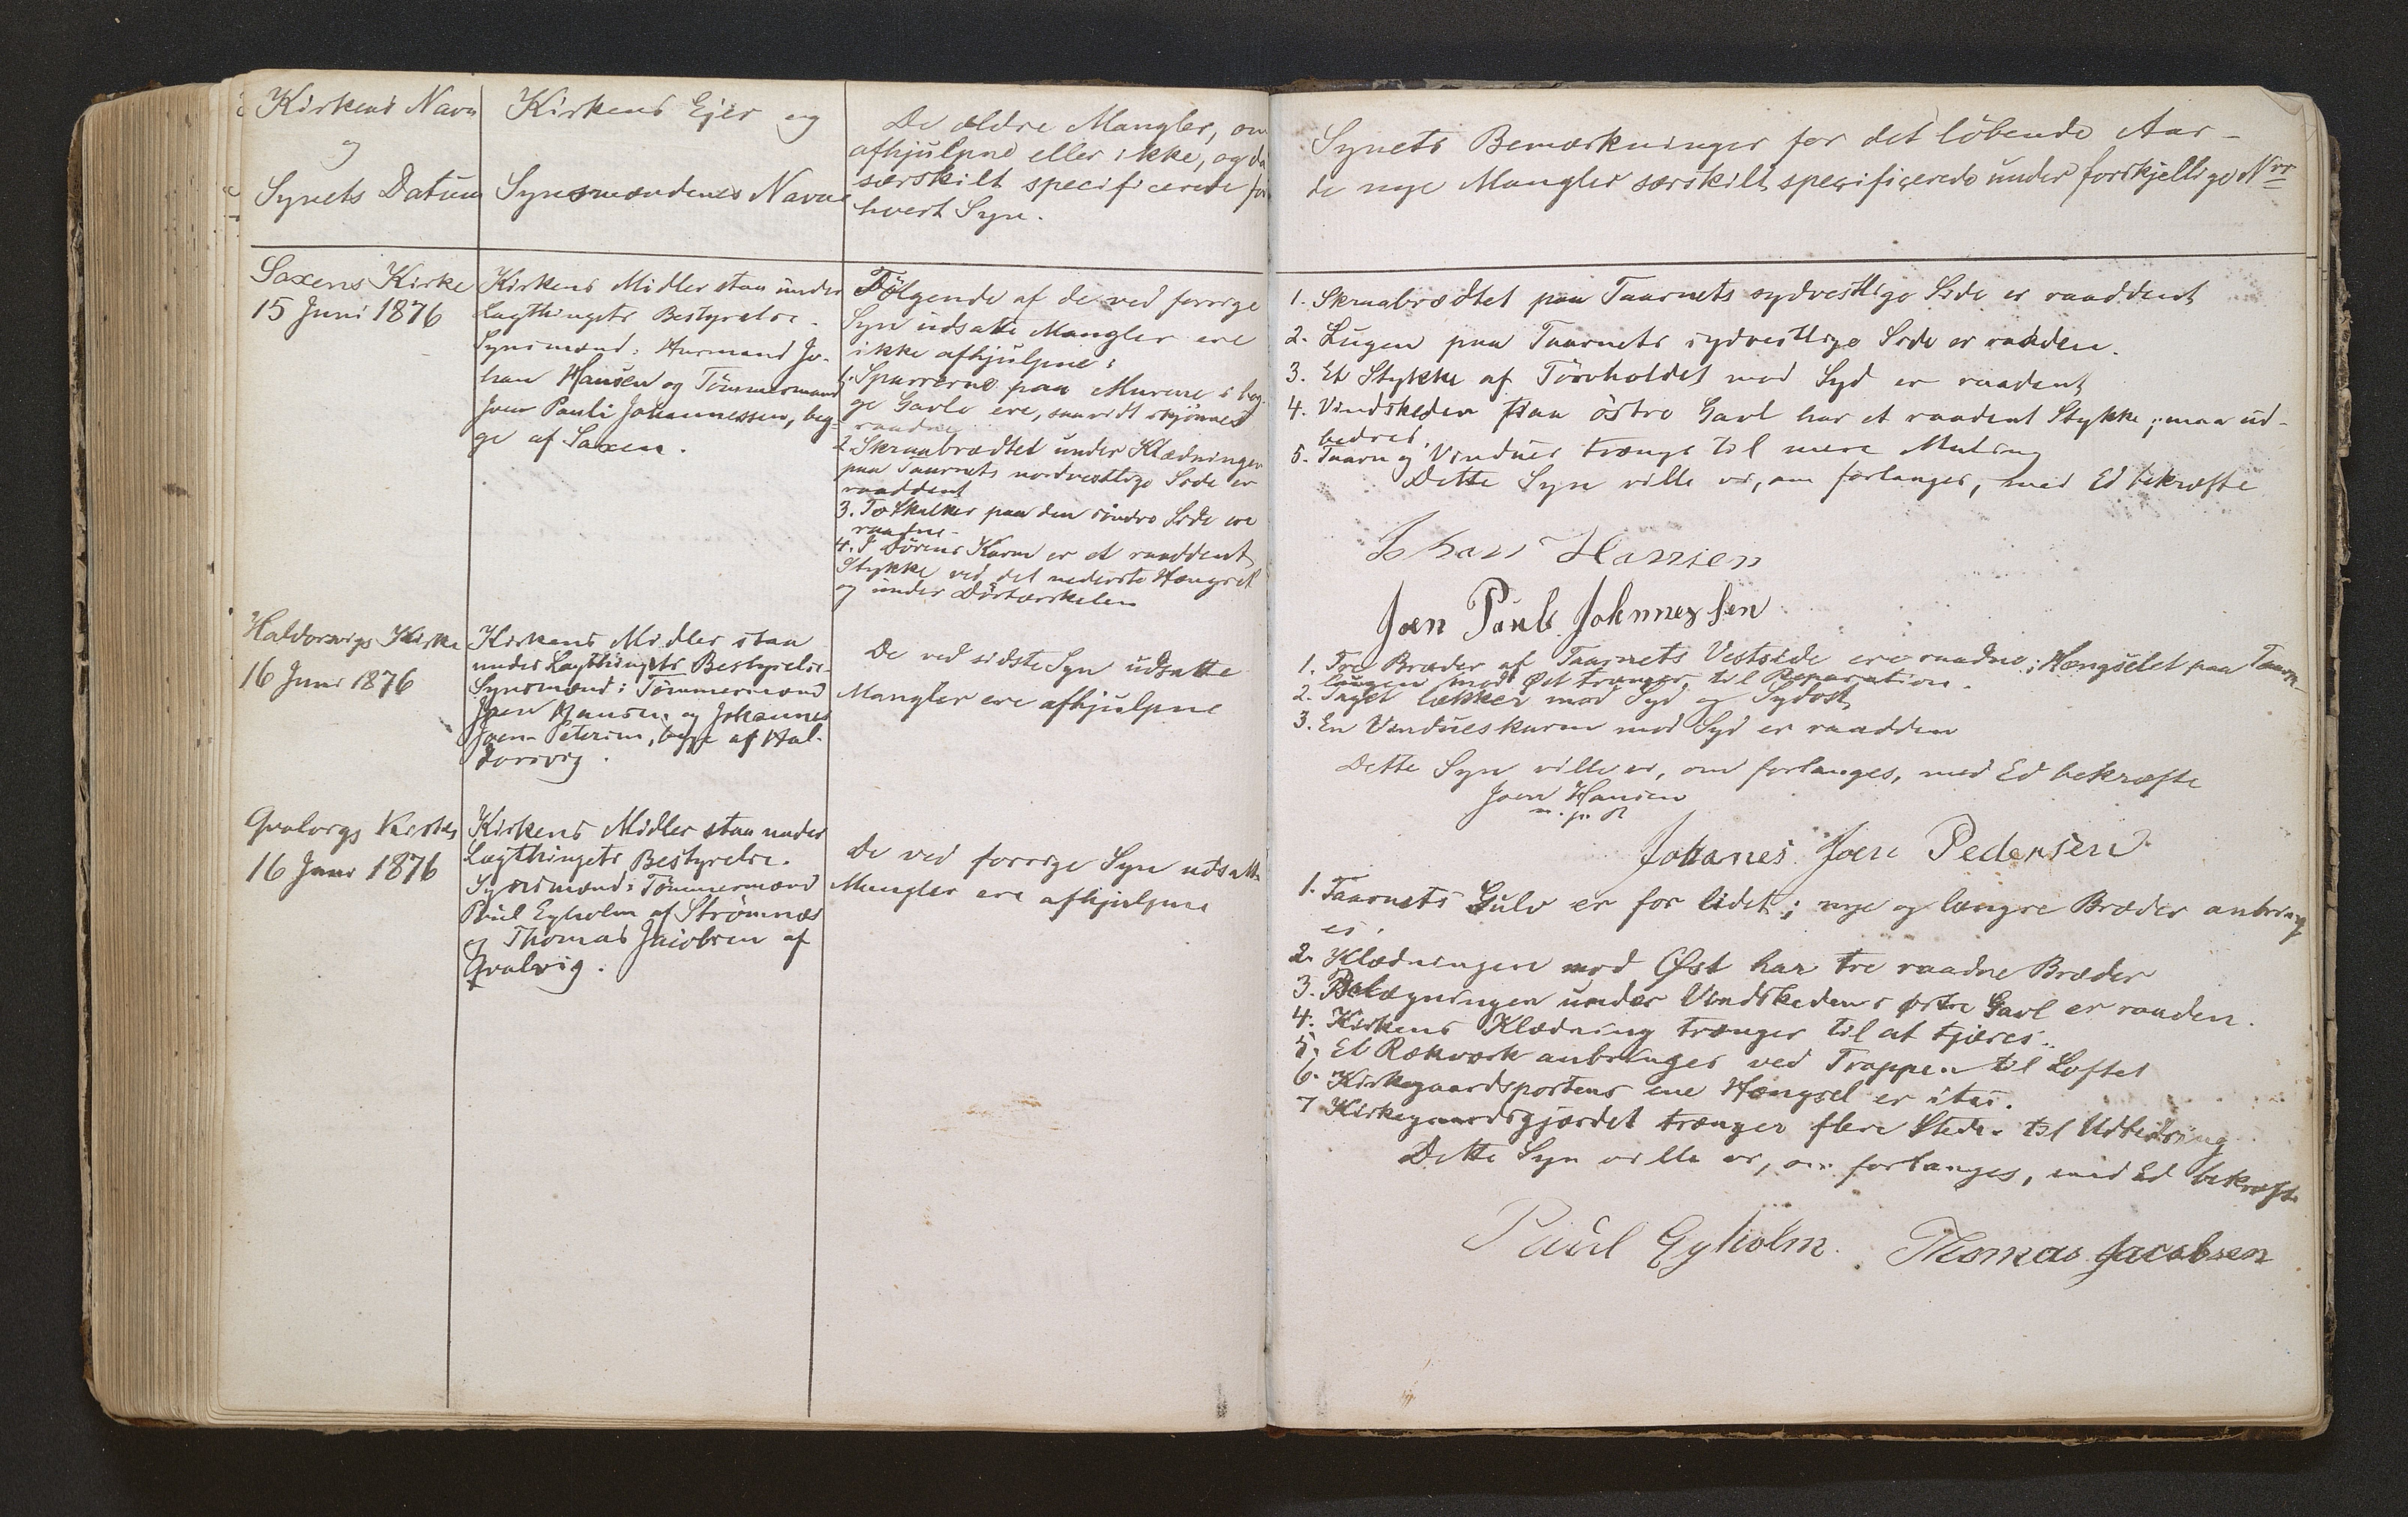 Kirkens Navn
og
Synets Datum
Kirkens Ejer og
Synsmændenes Navne
De ældre Mangler, om
afhjulpne eller ikke, og da
særskilt specificerede for
hvert Syn.
Saxens Kirke
15 Juni 1876
Kirkens Midler staa under
Lagthingets Bestyrelse.
Synsmænd: Huusmand Jo-
han Hansen og Tömmermand
Joen Pauli Johannessen, beg-
ge af Saxen.
Følgende af de ved forrige
Syn udsatte Mangler ere
ikke afhjulpne:
1. Sparrerne paa Murene i beg-
ge Gavle ere, saavidt skjönnes
raadne
2. Skraabrædtet under Klædningen
paa Taarnets nordvestlige Side er
raaddent
3. To Skalker paa den söndre Side ere
raadne.
4. I Dörens Karm er et raaddent
Stykke ved det nederste Hængsel
og under Dörtærskelen
Haldorsvigs Kirke
16 Juni 1876
Kirkens Midler staa
under Lagthingets Bestyrelse.
Synsmænd: Tömmermænd
Joen Hansen og Johannes
Joen Petersen, begge af Hal-
dorsvig.
De ved sidste Syn udsatte
Mangler ere afhjulpne
Qvalvigs Kirke
16 Juni 1876
Kirkens Midler staa under
Lagthingets Bestyrelse.
Synsmænd: Tömmermænd
Poul Eyholm af Strömnæs
og Thomas Jacobsen af
Qvalvig.
De ved forrige Syn udsatte
Mangler ere afhjulpne
Synets Bemærkninger for det löbende Aar -
de nye Mangler særskilt specificerede under forskjellige Nrr
1. Skraabrædtet paa Taarnets sydvestlige Side er raaddent
2. Lugen paa Taarnets sydvestlige Side er raadden.
3. Et Stykke af Törvholdet mod Syd er raadent
4. Vindskeden paa östre Gavl har et raadent Stykke; maa ud-
bedres.
5. Taarn og Vinduer trænge til mere Maling
Dette Syn ville vi, om forlanges, med Ed bekræfte
Johan Hansen
Joen Pauli Johannessen
1. Tre Bræder af Taarnets Vestside ere raadne; Hængselet paa Taarn-
lugen mod Øst trænger til Reparation.
2. Taget lækker mod Syd og Sydost
3. En Vindueskarm mod Syd er raadden
Dette Syn ville vi, om forlanges, med Ed bekræfte
Joen Hansen
m. p. P.
Johanes Joen Pedersen
1. Taarnets Gulv er for lidet; nye og længre Bræder anbring-
es.
2. Klædningen mod Øst har tre raadne Bræder
3. Belægningen under Vindskeden i østre Gavl er raaden.
4. Kirkens Klædning trænger til at tjæres.
5. Et Rækværk anbringes ved Trappen til Loftet
6. Kirkegaardsportens ene Hængsel er itu.
7 Kirkegaardsgjærdet trænger flere Steder til Udbedring
Dette Syn ville vi, om forlanges, med Ed bekræfte
Paul Eyholm. Thomas Jacobsen